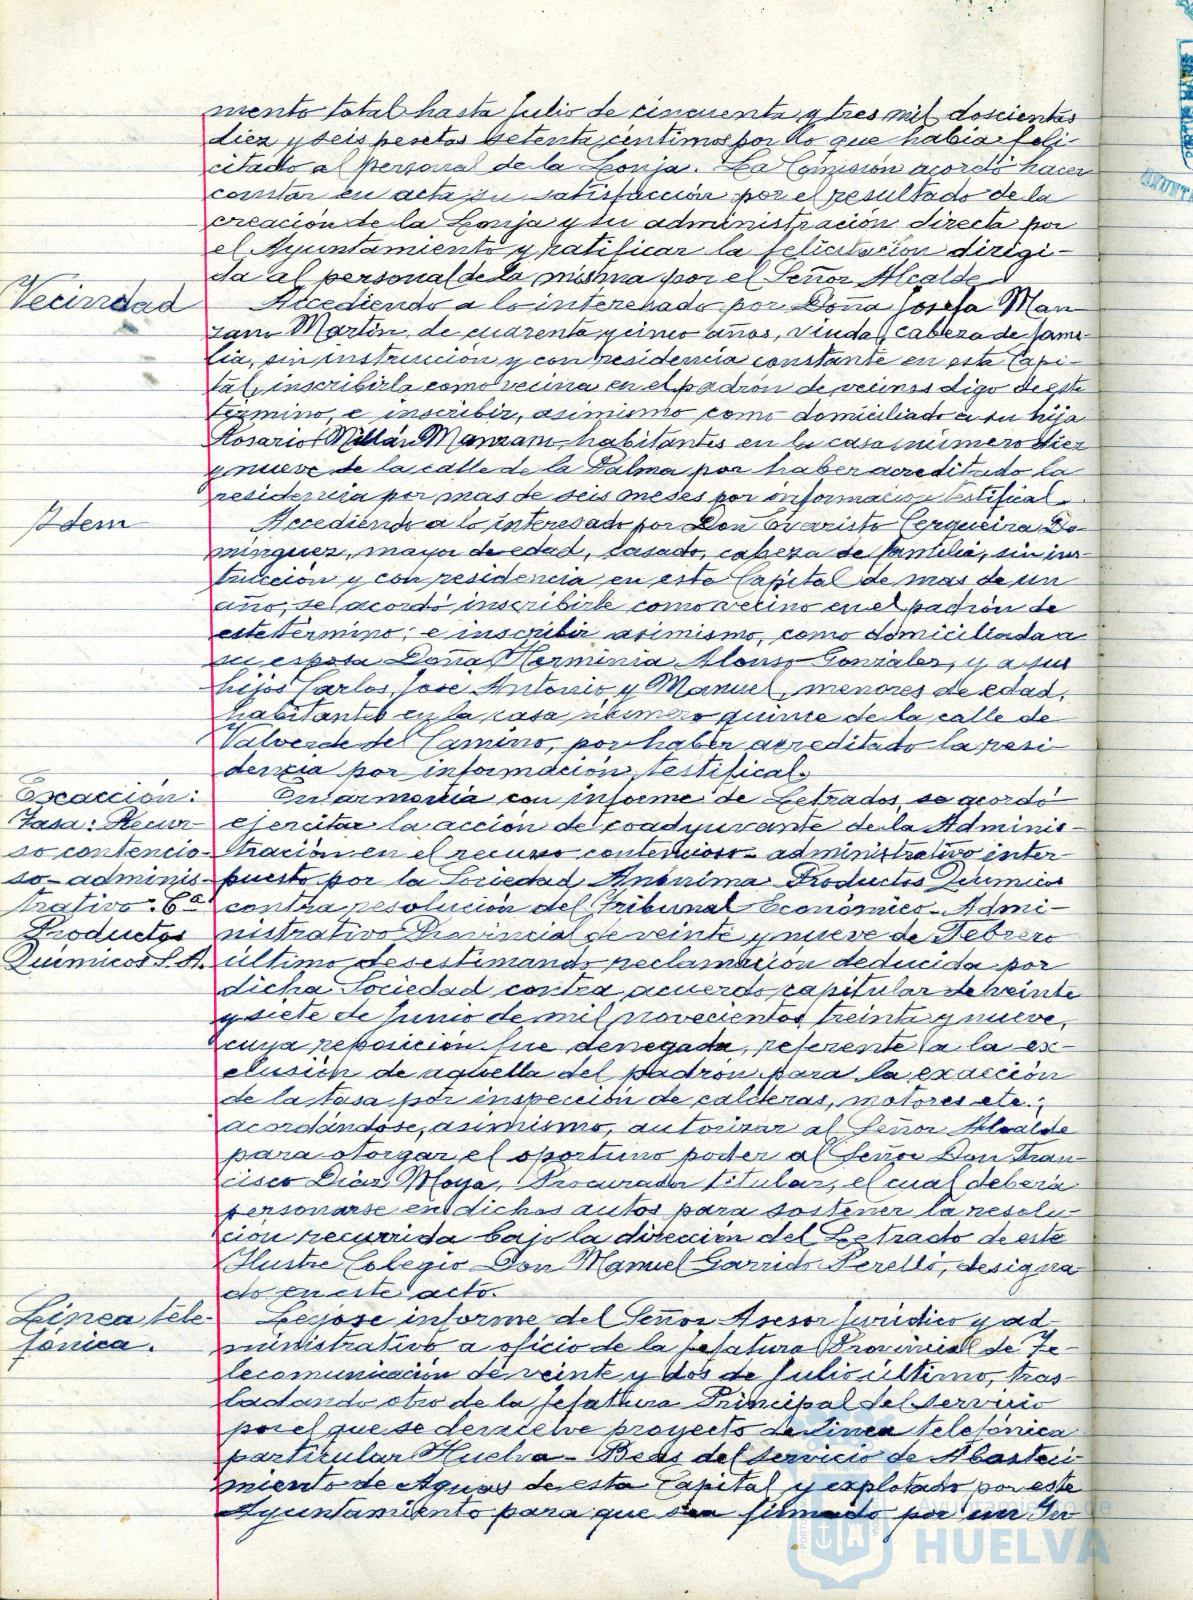 mento total hasta Julio de cincuenta y tres mil doscientas
diez y seis pesetas setenta céntimos por lo que había feli-
citado al personal de la Lonja. La Comisión acordó hacer
constar en acta su satisfacción por el resultado de la
creación de la Lonja y su administración directa por
el Ayuntamiento y ratificar la felicitación dirigi-
da al personal de la misma por el Señor Alcalde.
Vecindad
Accediendo a lo interesado por Doña Josefa Man-
zano Martín, de cuarenta y cinco años, viuda, cabeza de fami-
lia, sin instrucción y con residencia constante en esta Capi-
tal, inscribirla como vecina en el padrón de vecinos digo de este
término, e inscribir, asimismo como domiciliado a su hija
Rosario Millán Manzano, habitantes en la casa número diez
y nueve de la calle de la Palma por haber acreditado la
residencia por mas de seis meses por información testifical.
Idem
Accediendo a lo interesado por Don Evaristo Cerqueira Do-
mínguez, mayor de edad, casado, cabeza de familia, sin ins-
trucción y con residencia en esta Capital de mas de un
año, se acordó inscribirle como vecino en el padrón de
este término; e inscribir asimismo, como domiciliada a
su esposa Doña Herminia Alonso Gonzalez, y a sus
hijos Carlos, Jose Antonio y Manuel, menores de edad,
habitantes en la casa número quince de la calle de
Valverde del Camino, por haber acreditado la resi-
dencia por información testifical.
Exacción:
Tasa: Recur-
so contencio-
so-adminis-
trativo. Cª
Productos
Químicos S.A.
En armonía con informe de Letrados, se acordó
ejercitar la acción de coadyuvante de la Adminis-
tración en el recurso contencioso-administrativo inter
puesto por la Sociedad Anónima Productos Químicos
contra resolución del Tribunal Económico-Admi-
nistrativo Provincial de veinte y nueve de Febrero
último desestimando reclamación deducida por
dicha Sociedad contra acuerdo capitular de veinte
y siete de Junio de mil novecientos treinta y nueve,
cuya reposición fue denegada, referente a la ex-
clusión de aquella del padrón para la exacción
de la tasa por inspección de calderas, motores etc.;
acordándose, asimismo, autorizar al Señor Alcalde
para otorgar el oportuno poder al Señor Don Fran-
cisco Díaz Moya, Procurador titular, el cual deberá
personarse en dichos autos para sostener la resolu-
ción recurrida bajo la dirección del Letrado de este
Ilustre Colegio Don Manuel Garrido Perelló, designa
do en este acto.
Línea tele-
fónica.
Leyose informe del Señor Asesor Jurídico y ad-
ministrativo a oficio de la Jefatura Provincial de Te-
lecomunicación de veinte y dos de Julio último, tras-
ladando otro de la Jefatura Principal del servicio
por el que se devuelve proyecto de línea telefónica
particular Huelva-Beas del servicio de Abasteci-
miento de Aguas de esta Capital y explotado por este
Ayuntamiento para que sea firmado por un In
Ayuntamiento de
HUELVA